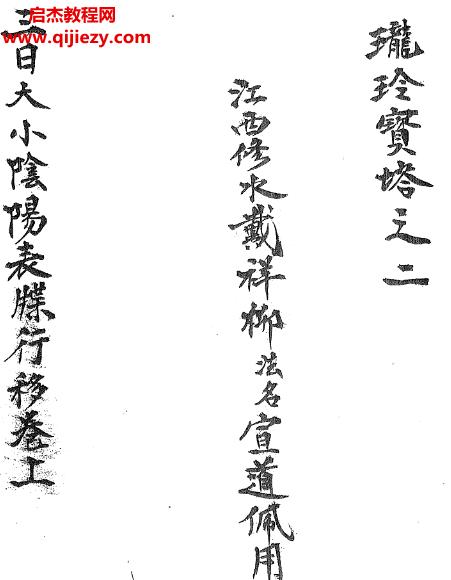 瓏玲寳塔之二
江西修水戴祥柳法名宣道佩用
三日大小陰陽表牒行移卷上
启杰教程网
www.qijiezy.com